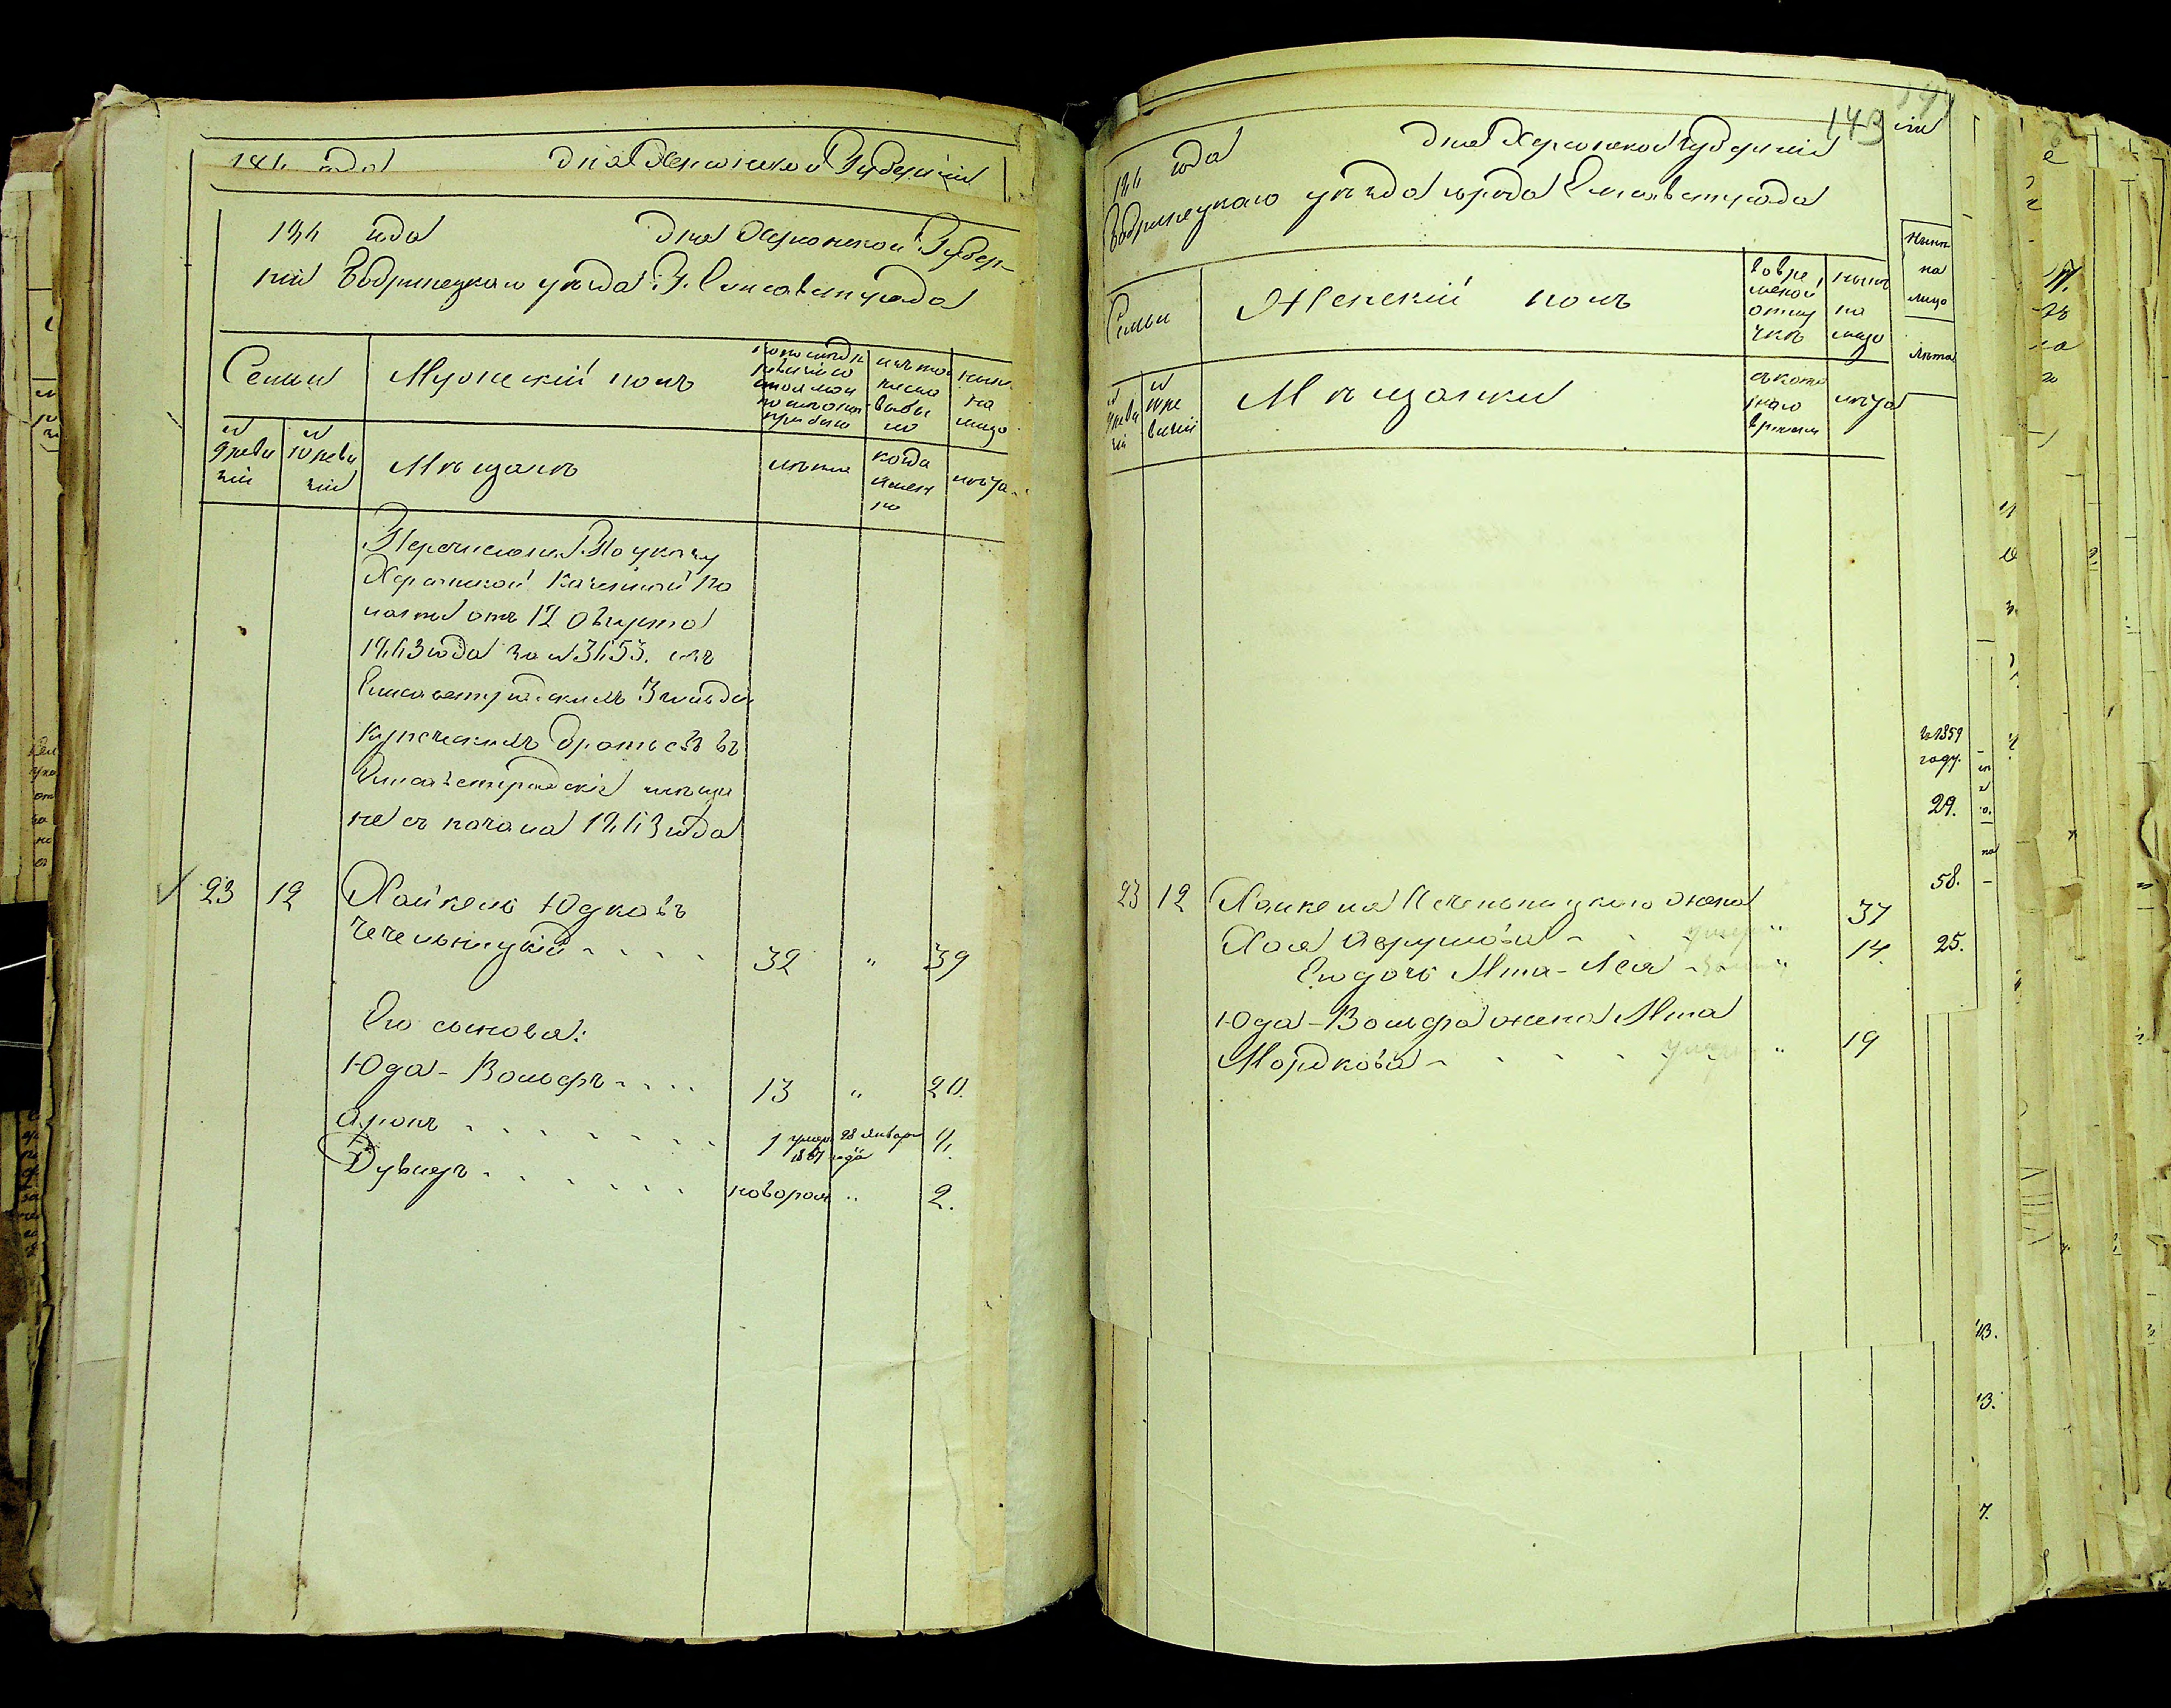 186 года дня Херсонской Губерніи
186 года дня Херсонской Губер-
ніи Бобринецкаго уѣзда Г. Елисаветграда
Семьи
Мужескій полъ
по последн
ревизіи со
стояло и
после оной
прибыло
изъ то
числа
выбы
ло
нынѣ
на
лицо
№
9 реви
зіи
№
10 реви
зіи
Мѣщанъ
лѣта
когда
имен
но
лѣта
Перечислены По указу
Херсонской Казенной Па
латы отъ 12 августа
1863 года за № 3653. изъ
Елисаветградскихъ 3 гильдіи
купеческихъ братьевъ въ
Елисаветградскіе мѣща
не съ начала 1863 года
23 12 Хайкель Юдковъ
Чечельницкій - - - - 32 " 39
Его сыновья:
Юда-Вольфъ - - - - 13 " 20.
Аронъ - - - - - - - 1 умеръ 28 января 1861 года 4.
Дувидъ - - - - - - новорож " 2.
143
186 года дня Херсонской Губерніи
Бобринецкаго уѣзда города Елисаветграда
Семьи
Женскій полъ
во вре
менной
отлу
чкѣ
нынѣ
на
лицо
№
9 реви
зіи
№
10 ре
визіи
Мѣщанки
съ кото
раго
времени
лѣта
23 12 Хайкеля Чечельницкаго жена
Хая Аврумова - - умер " 37
Его дочь Мта-Лея - " 14.
Юда-Вольфа жена Мта
Мордкова - - - - умер " 19
Нынѣ
на
лицо
лѣта
въ 1859
году.
29.
58.
25.